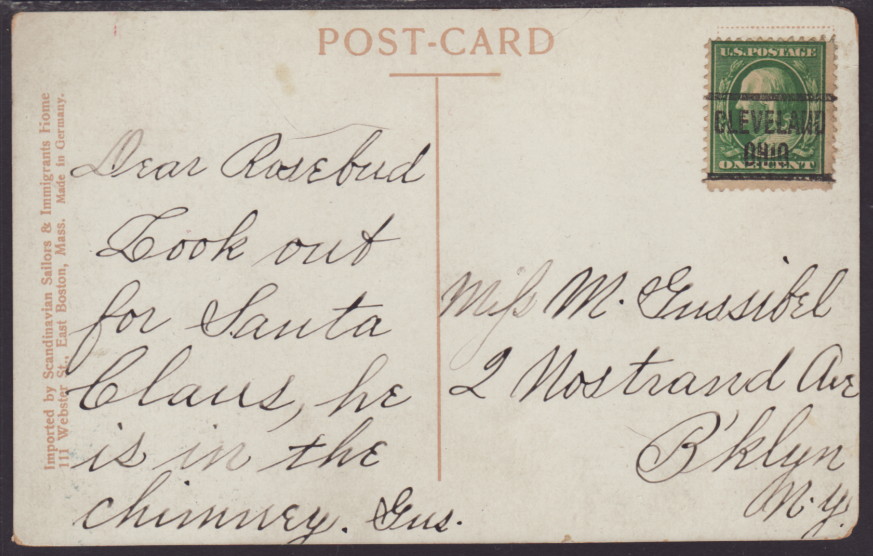 POST-CARD
U.S. POSTAGE
CLEVELAND
OHIO
ONE CENT
Imported by Scandinavian Sailors & Immigrants Home
111 Webster St., East Boston, Mass. Made in Germany.
Dear Rosebud
Look out
for Santa
Claus, he
is in the
chimney. Gus.
Miss M. Gussibel
2 Nostrand Ave
B'klyn
N.Y.